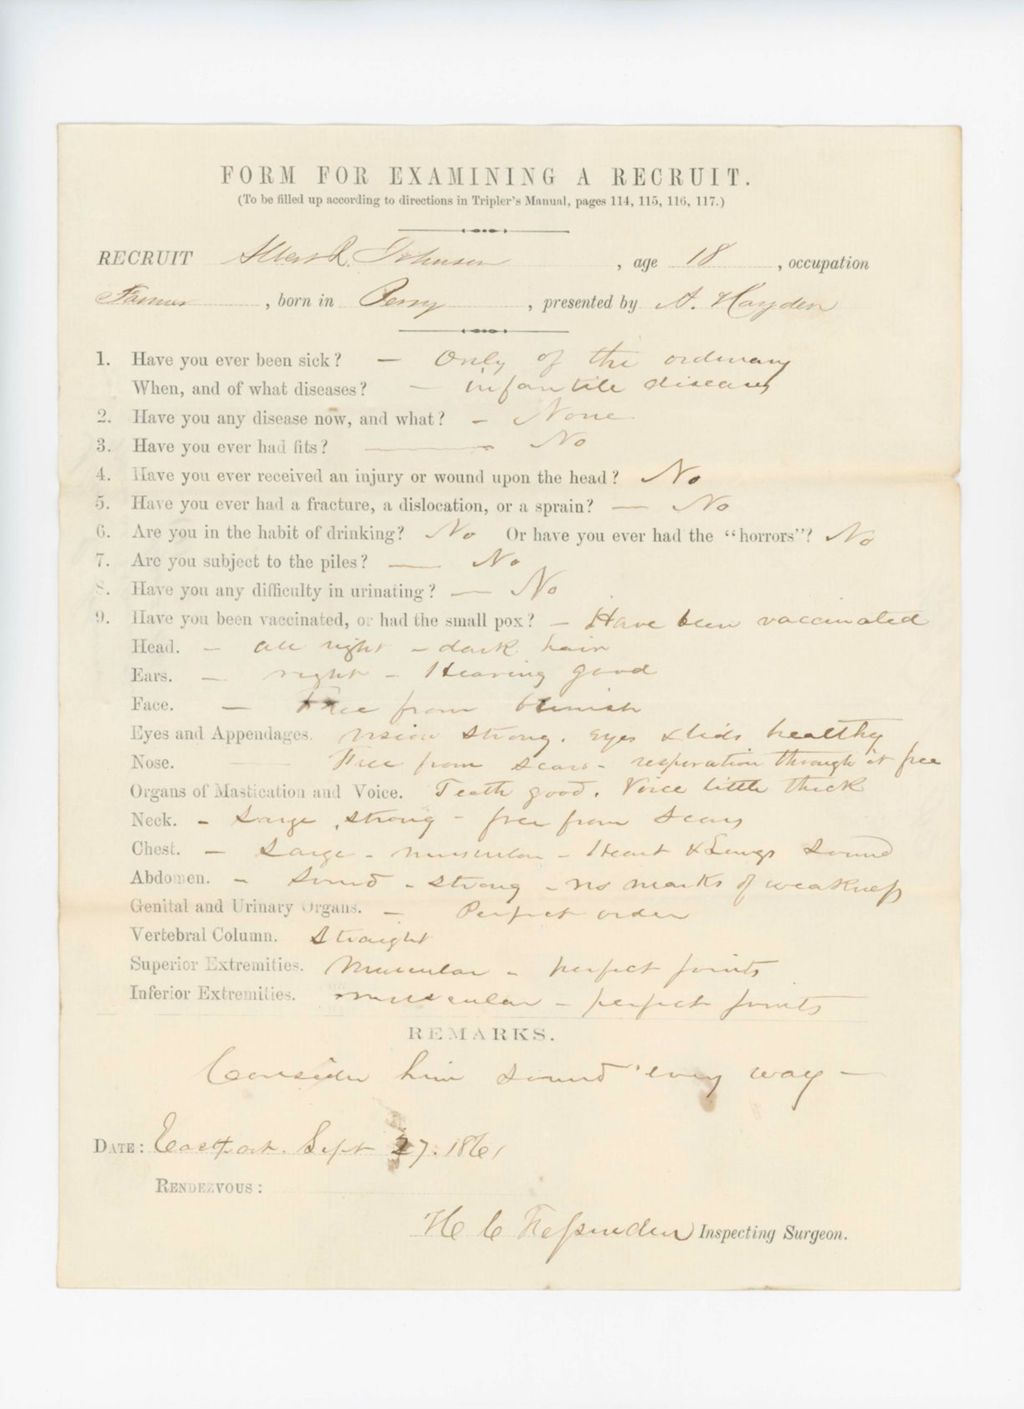 FORM FOR EXAMINING A RECRUIT.
(To be filled up according to directions in Tripler's Manual, pages 114, 115, 116, 117.)
RECRUIT Albert R. Johnson, age 18, occupation
Farmer, born in Perry, presented by A. Hayden
1. Have you ever been sick? — Only of the ordinary
When, and of what diseases? — infantile diseases
2. Have you any disease now, and what? — None
3. Have you ever had fits? — No
4. Have you ever received an injury or wound upon the head? No
5. Have you ever had a fracture, a dislocation, or a sprain? — No
6. Are you in the habit of drinking? No Or have you ever had the "horrors"? No
7. Are you subject to the piles? — No
8. Have you any difficulty in urinating? — No
9. Have you been vaccinated, or had the small pox? — Have been vaccinated
Head. — all right — dark hair
Ears. — right — Hearing good
Face. — Free from blemish
Eyes and Appendages. Vision strong. Eyes & lids healthy
Nose. Free from scars — respiration through it free
Organs of Mastication and Voice. Teeth good. Voice little thick
Neck. — Large, strong — free from scars
Chest. — Large — muscular — Heart & Lungs sound
Abdomen. — Sound — strong — no marks of weakness
Genital and Urinary Organs. — Perfect order
Vertebral Column. Straight
Superior Extremities. Muscular — perfect joints
Inferior Extremities. muscular — perfect joints
REMARKS.
Consider him sound every way —
DATE: Eastport. Sept 27. 1861
RENDEZVOUS:
H C Fessenden Inspecting Surgeon.